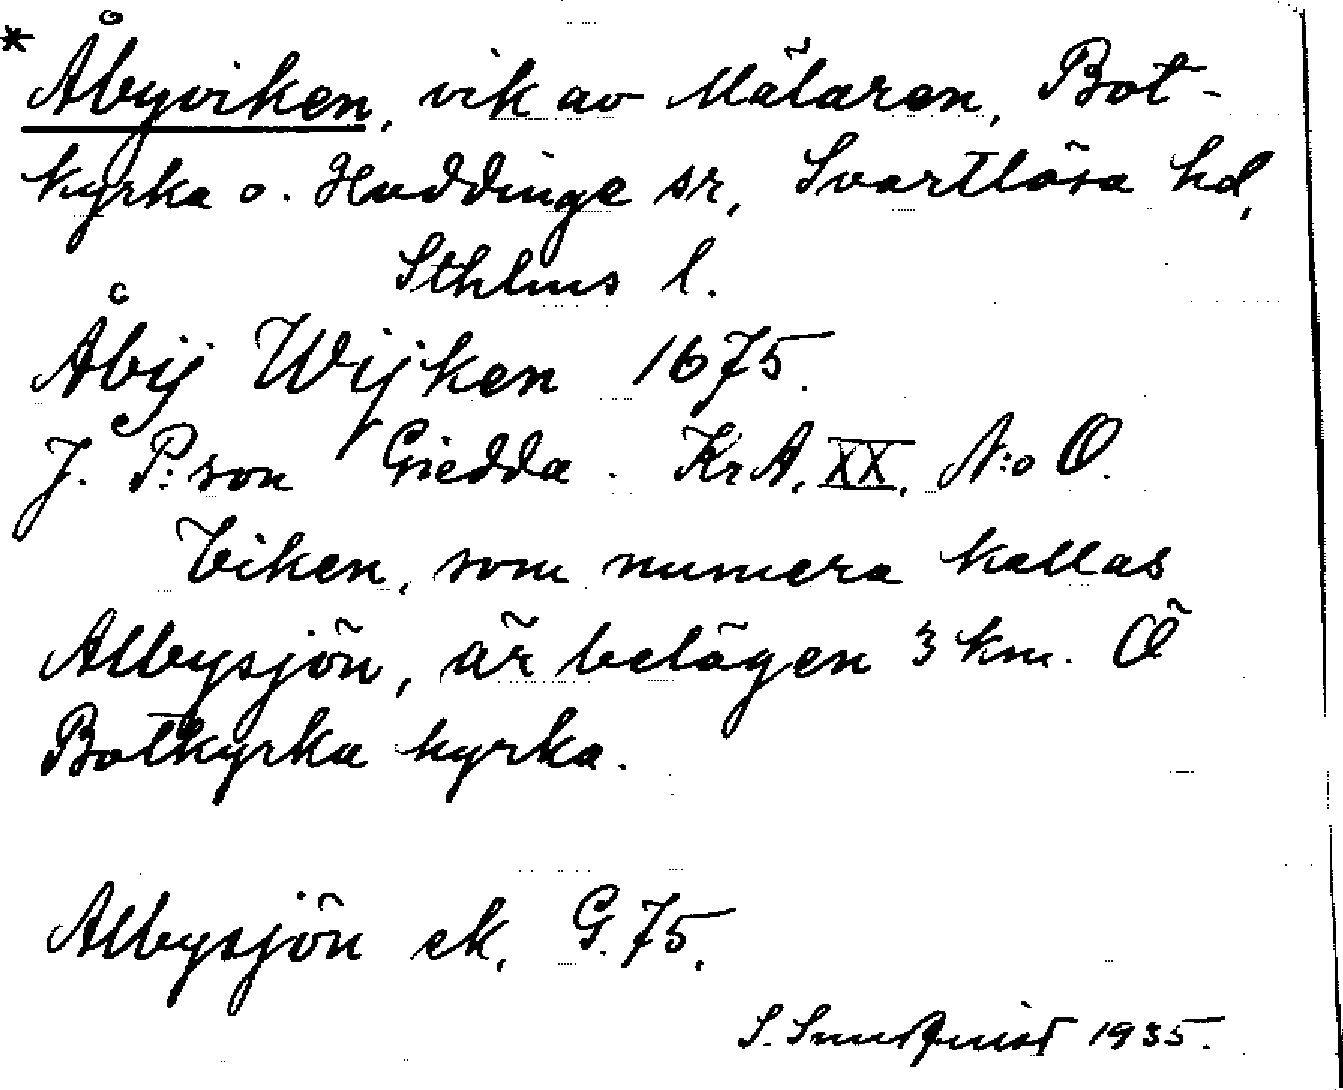 * Åbyviken, vik av Mälaren, Bot-
kyrka o. Huddinge sr, Svartlösa hd,
Sthlms l.
Åbij Wijken 1675.
J. P:son Giedda. KrA, XX, N:o O.
Viken, som numera kallas
Albysjön, är belägen 3 km. Ö
Botkyrka kyrka.
Albysjön ek. G. 75.
S. 1935.